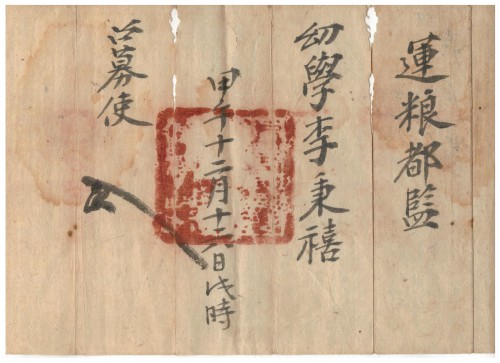 運粮都監
幼學李秉禧
甲午十二月十二日戌時
召募使